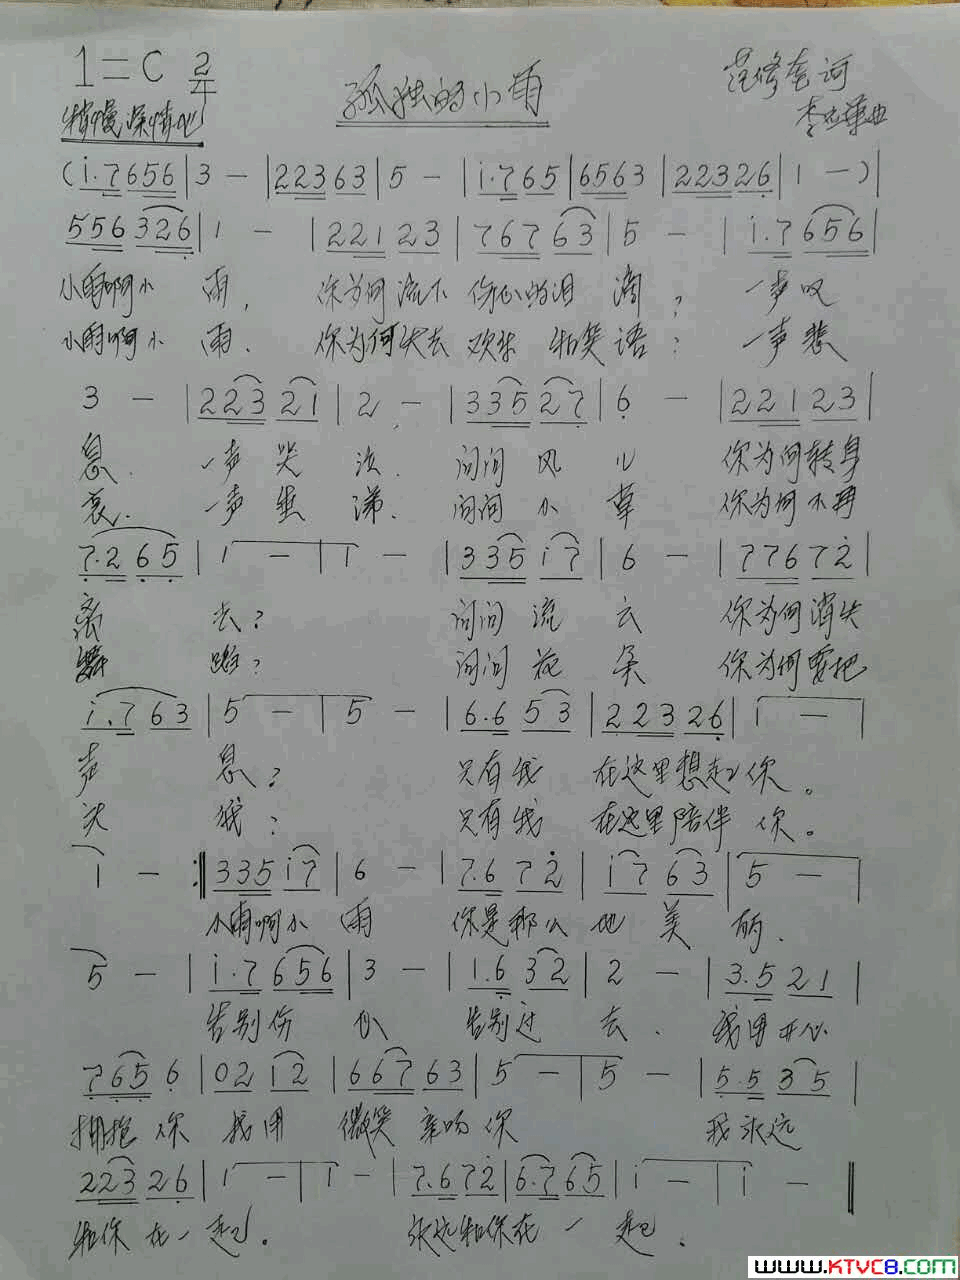 1=C 2/4
孤独的小雨
范修奎词
稍慢 深情地
李 曲
(i.7656|3 -|22363|5 -|i.765|6563|22326|1 -)|
556326|1 -|22123|76763|5 -|i.7656|
小雨啊小 雨, 你为何流下 伤心的泪 滴? 一声叹
小雨啊小 雨. 你为何失去 欢乐 和笑语? 一声悲
3 -|22321|2 -|33527|6 -|22123|
息. 一声哭 泣. 问问 风 儿 你为何转身
哀. 一声 涕. 问问 小 草 你为何不再
7.265|1 -|1 -|335i7|6 -|77672|
离 去? 问问 流 云 你为何消失
舞 蹈? 问问 花 朵 你为何要把
i.763|5 -|5 -|6.653|22326|1 -|
声 息? 只有我 在这里想起 你。
头 低? 只有我 在这里陪伴 你。
1 - :‖335i7|6 -|7.672|i763|5 -
小雨啊小 雨 你是那么 地 美 丽.
5 -|i.7656|3 -|1.632|2 -|3.521|
告别伤 心 告别过 去. 我用开心
7656|02i2|66763|5 -|5 -|5.535|
拥抱 你 我用 微笑 亲吻 你 我永远
22326|1 -|1 -|7.672|6.765|i -|i - ‖
和你 在一 起。 永远和你在 一 起.
www.KTVC8.com